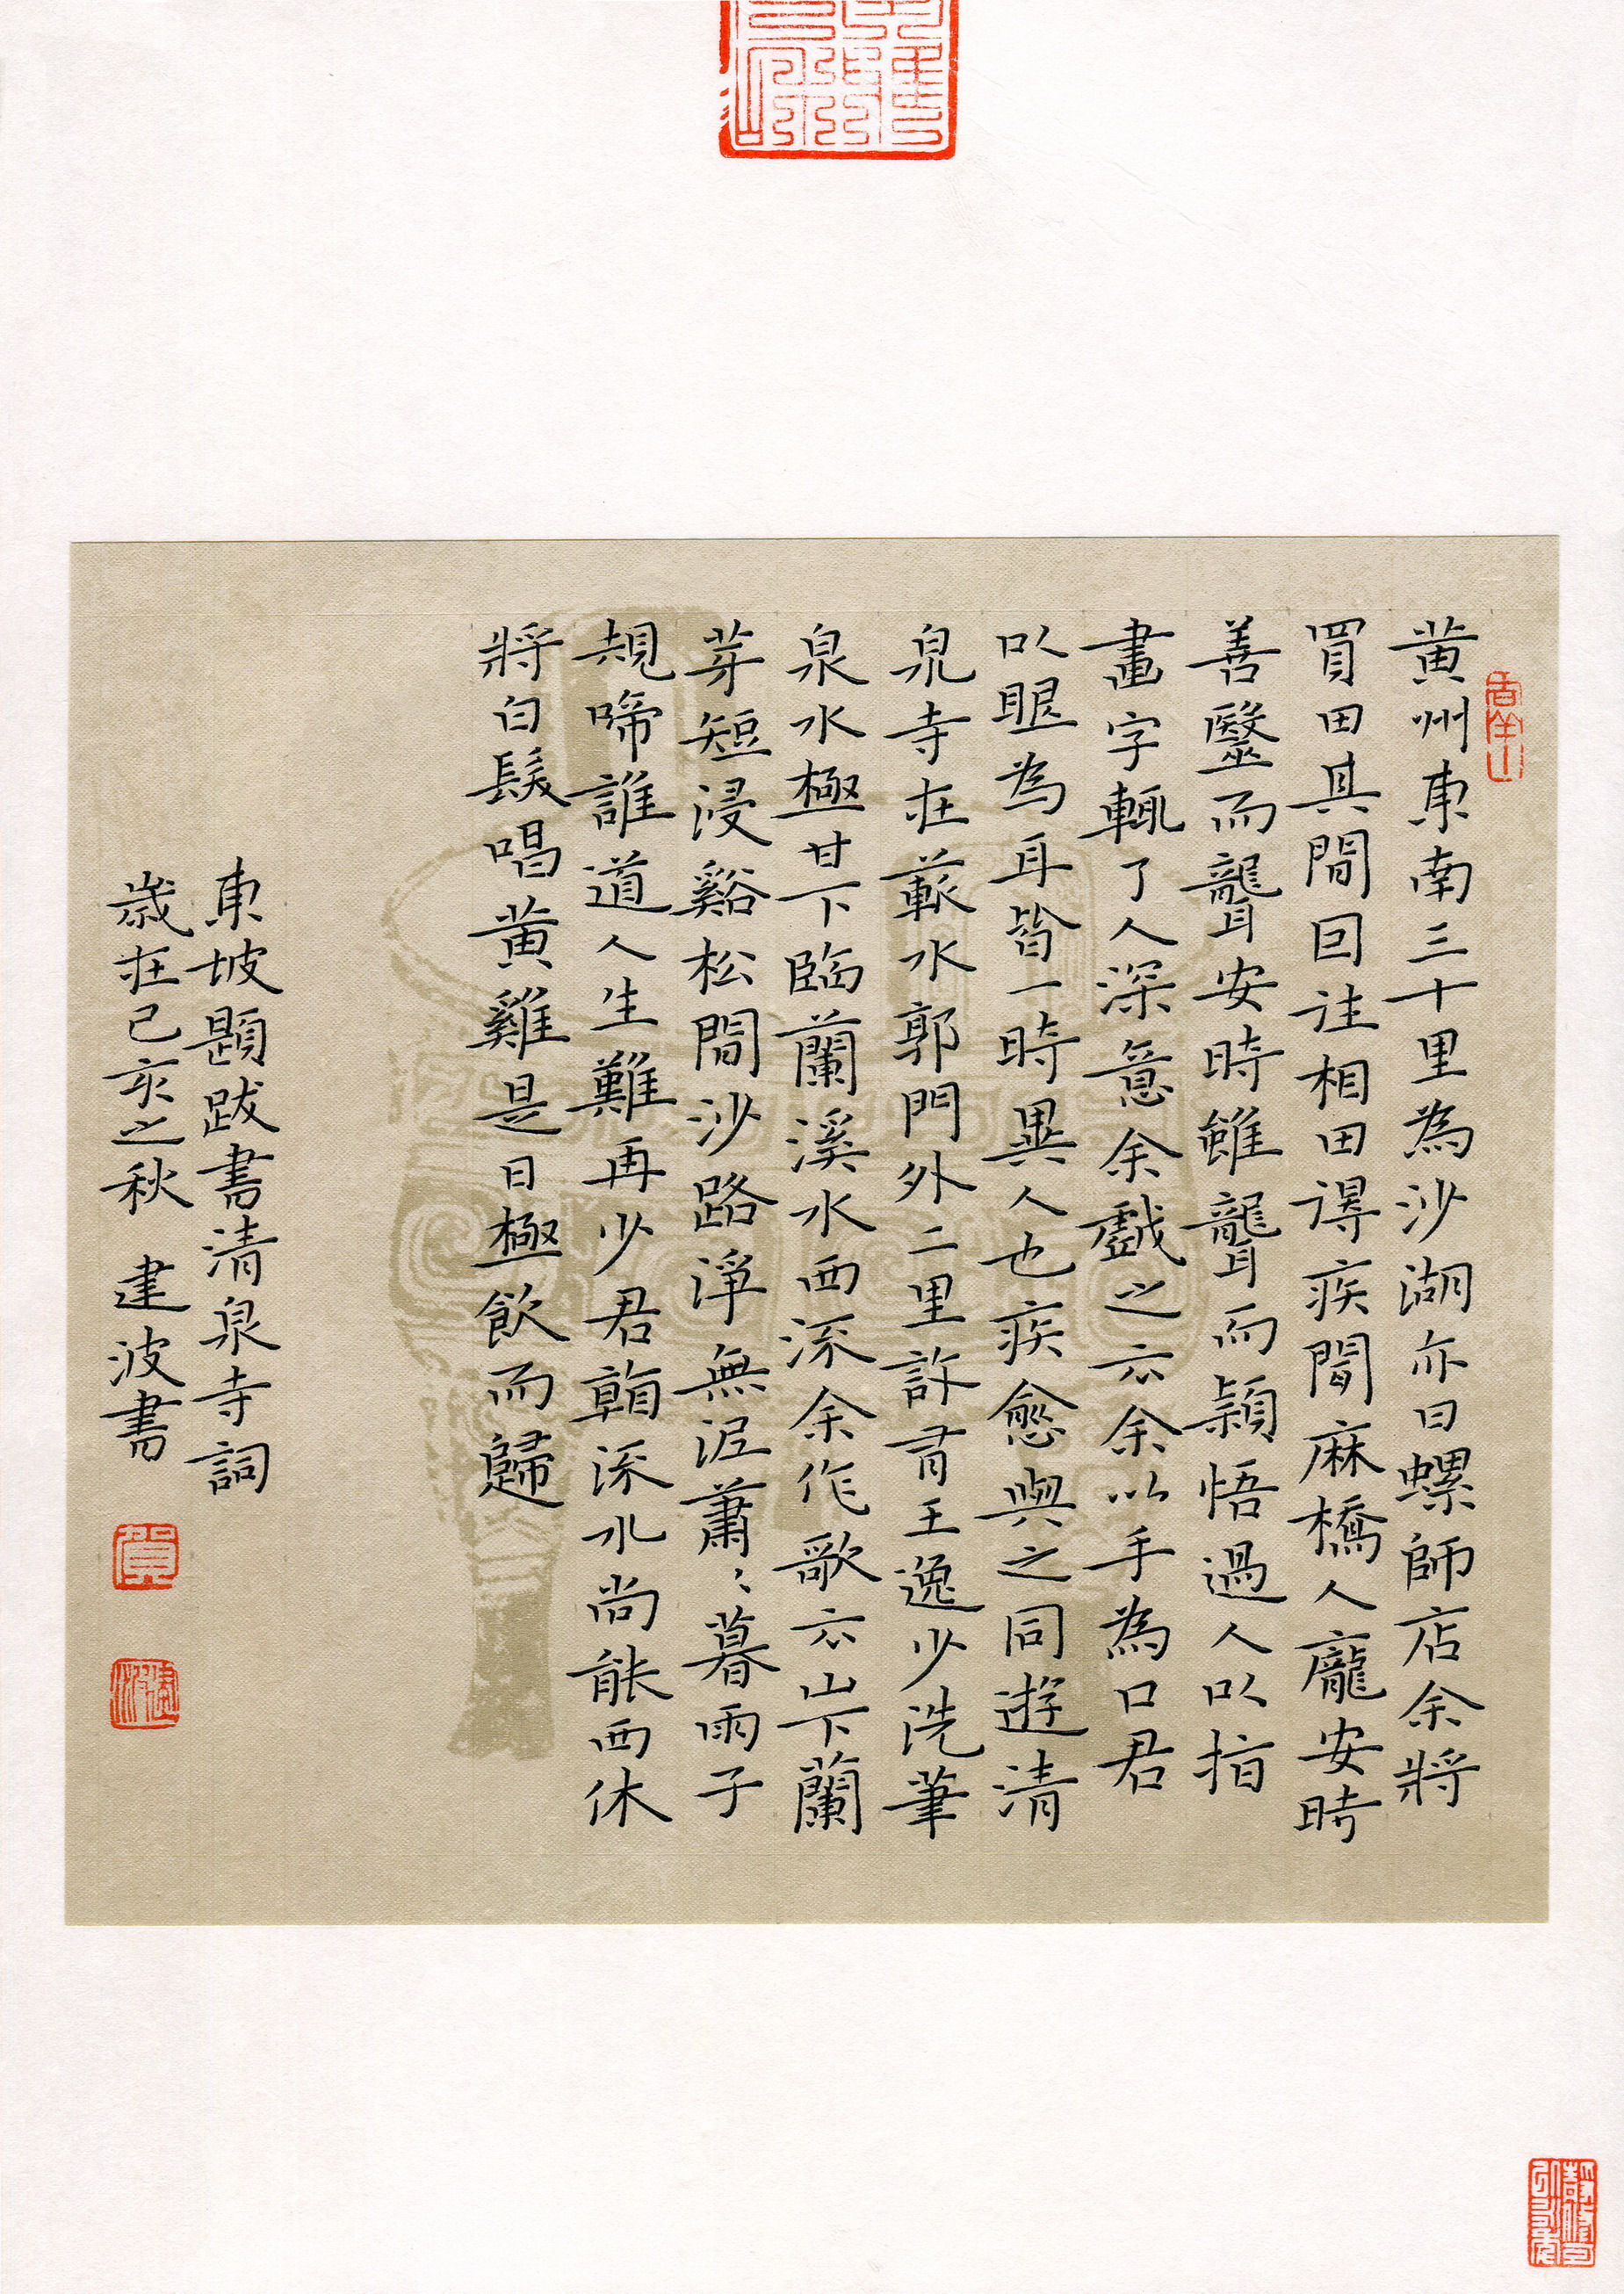 黄州東南三十里為沙湖亦曰螺師店余將
買田其間回往相田得疾聞麻橋人龐安時
善毉而聾安時雖聾而穎悟過人以指
畫字輒了人深意余戲之云余以手為口君
以眼為耳皆一時異人也疾愈與之同遊清
泉寺在蘄水郭門外二里許有王逸少洗筆
泉水極甘下臨蘭溪水西流余作歌云山下蘭
芽短浸谿松間沙路淨無泥蕭〻暮雨子
規啼誰道人生難再少君看流水尚能西休
將白髮唱黄雞是日極飲而歸
東坡題跋書清泉寺詞
歲在己亥之秋 建波書
賀
建波